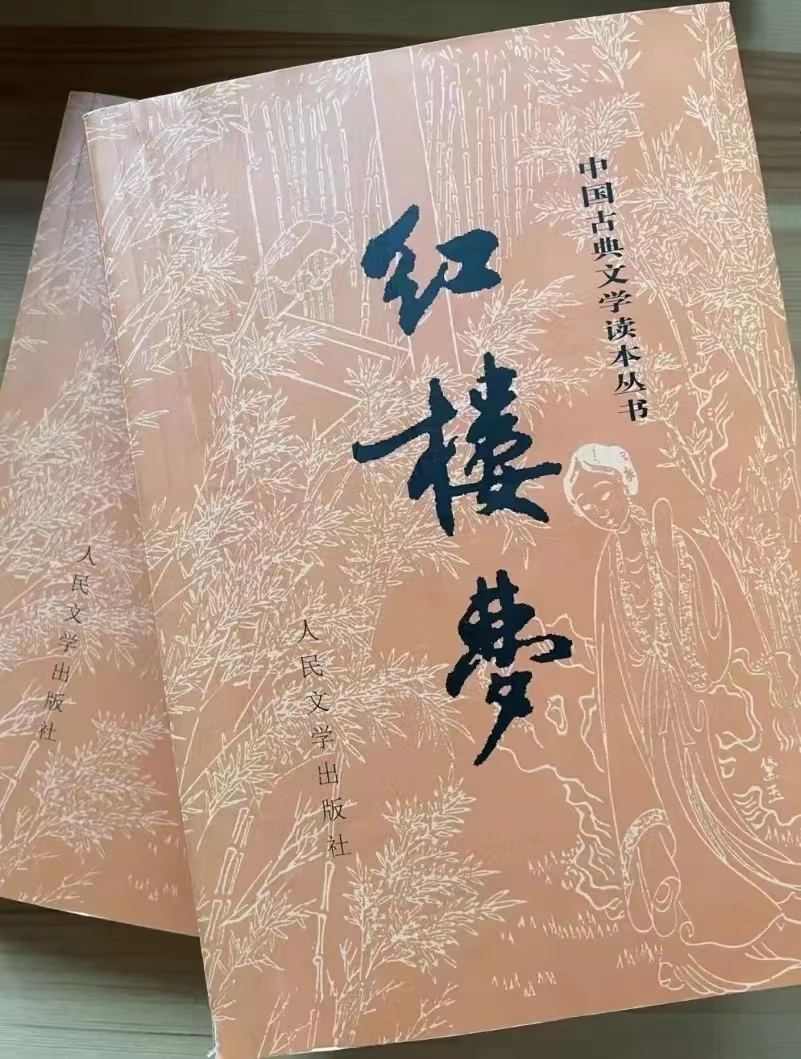 中国古典文学读本丛书
红楼梦
人民文学出版社
黛玉
人民文学出版社